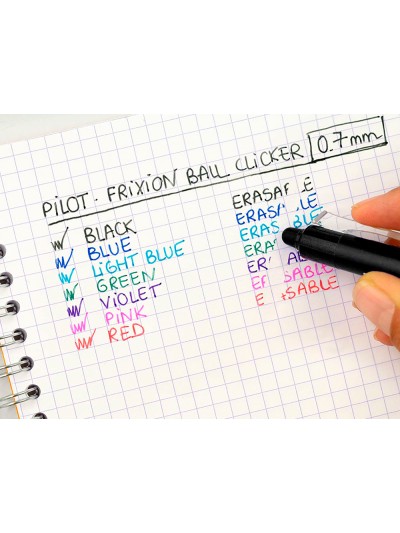 PILOT · FRIXION BALL CLICKER 0.7mm
BLACK
BLUE
LIGHT BLUE
GREEN
VIOLET
PINK
RED
ERASA LE
ERASA BLE
ERAS BLE
ERAS
ER AB
ER SABLE
E SABLE